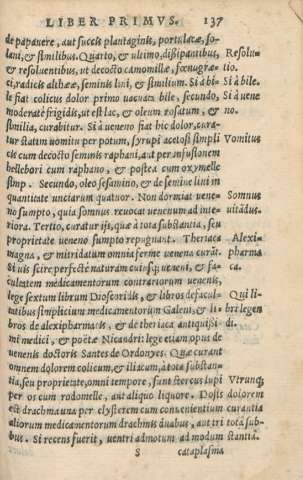 LIBER PRIMVS. 137
de papauere, aut succis plantaginis, portulacæ, so-
lani, & similibus. Quarto, & ultimo, dißipantibus, Resolu-
& resoluentibus, ut decocto camomillæ, fœnugræ- tio.
ci, radicis altheæ, seminis lini, & similium. Si à bi- Si à bile.
le fiat colicus dolor primo uacuata bile, secundo, Si à vene
moderatè frigidis, ut est lac, & oleum rosatum, & no.
similia, curabitur. Si à ueneno fiat hic dolor, cura-
tur statim uomitu per potum, syrupi acetosi simpli Vomitus
cis cum decocto seminis raphani, aut per infusionem
hellebori cum raphano, & postea cum oxymelle
simp. Secundo, oleo sesamino, & de semine lini in
quantitate unciarum quatuor. Non dormiat vene- Somnus
no sumpto, quia somnus reuocat venenum ad inte- uitādus.
riora. Tertio, curatur ijs, quæ à tota substantia, seu
proprietate veneno sumpto repugnant. Theriaca Alexi-
magna, & mitridatum omnia ferme venena curāt. pharma
Si uis scire perfectè naturam cuiusq; ueneni, & fa- ca.
cultatem medicamentorum contrariorum uenenis,
lege sextum librum Dioscoridis, & libros de facul- Qui li-
tatibus simplicium medicamentorum Galeni, & li- bri legen
bros de alexipharmacis, & de theriaca antiquißi- di.
mi medici, & poëtæ Nicandri: lege etiam opus de
uenenis doctoris Santes de Ordonyes. Quæ curant
omnem dolorem colicum, & iliacum, à tota substan-
tia, seu proprietate, omni tempore, sunt stercus lupi Vtrunq;
per os cum rodomelle, aut aliquo liquore. Dosis dolorem
est drachma una per clysterem cum conuenientium curantia
aliorum medicamentorum drachmis duabus, aut tri tota sub-
bus. Si recens fuerit, ventri admotum ad modum stantia.
S cataplasma